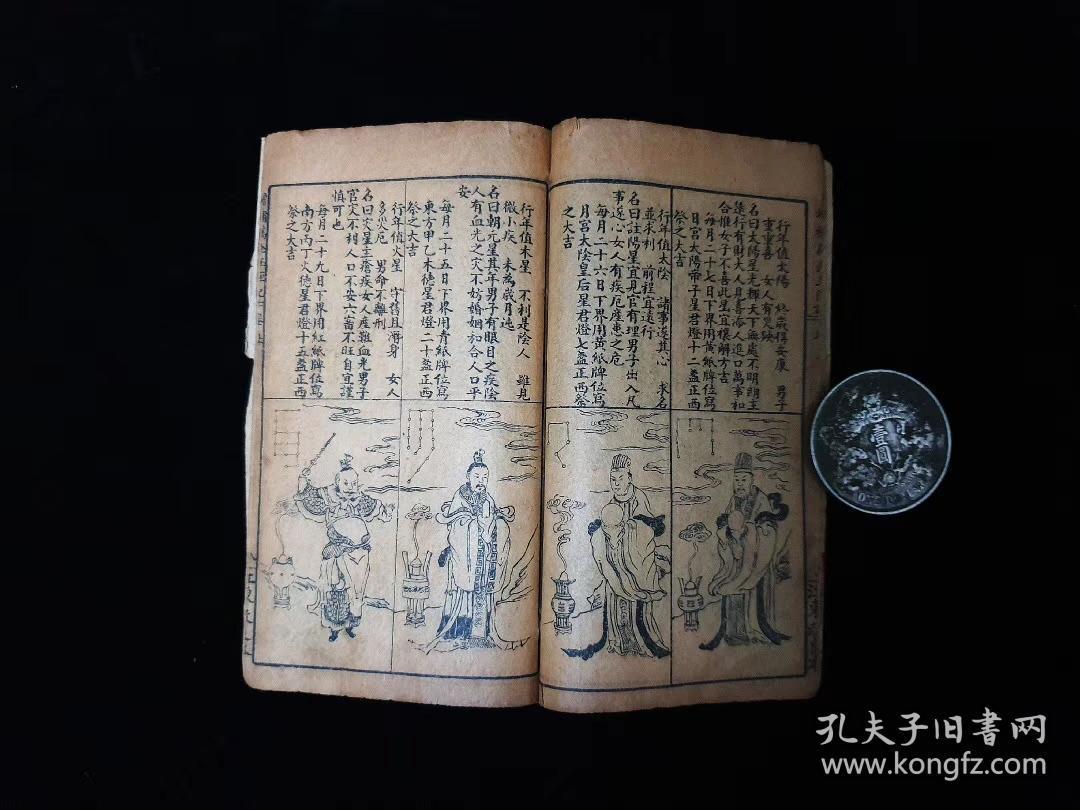 行年值太陽　終歲得安康　男子
重重喜　女人有災殃
名曰太陽星光輝天下無處不明朗主
遠行有財大人見喜添人進口萬事和
合惟女子不喜此星宜禳解方吉
每月二十七日下界用黃紙牌位寫
日宮太陽帝子星君燈十二盞正西
祭之大吉
行年值太陰　諸事遂其心　求名
並求利　前程宜遠行
名曰註陽星宜見官有理男子出入凡
事遂心女人有疾厄產患之危
每月二十六日下界用黃紙牌位寫
月宮太陰皇后星君燈七盞正西祭
之大吉
行年值木星　不利是陰人　雖見
微小疾　未為歲月迍
名曰朝元星其年男子有眼目之疾陰
人有血光之灾不妨婚姻和合人口平
安
每月二十五日下界用青紙牌位寫
東方甲乙木德星君燈二十盞正西
祭之大吉
行年值火星　守舊且滯身　女人
多災厄　男命不離刑
名曰灾星主瘡疾女人產難血光男子
官灾不利人口不安六畜不旺自宜謹
慎可也
每月二十九日下界用紅紙牌位寫
南方丙丁火德星君燈十五盞正西
祭之大吉
壹圓
孔夫子旧书网
www.kongfz.com